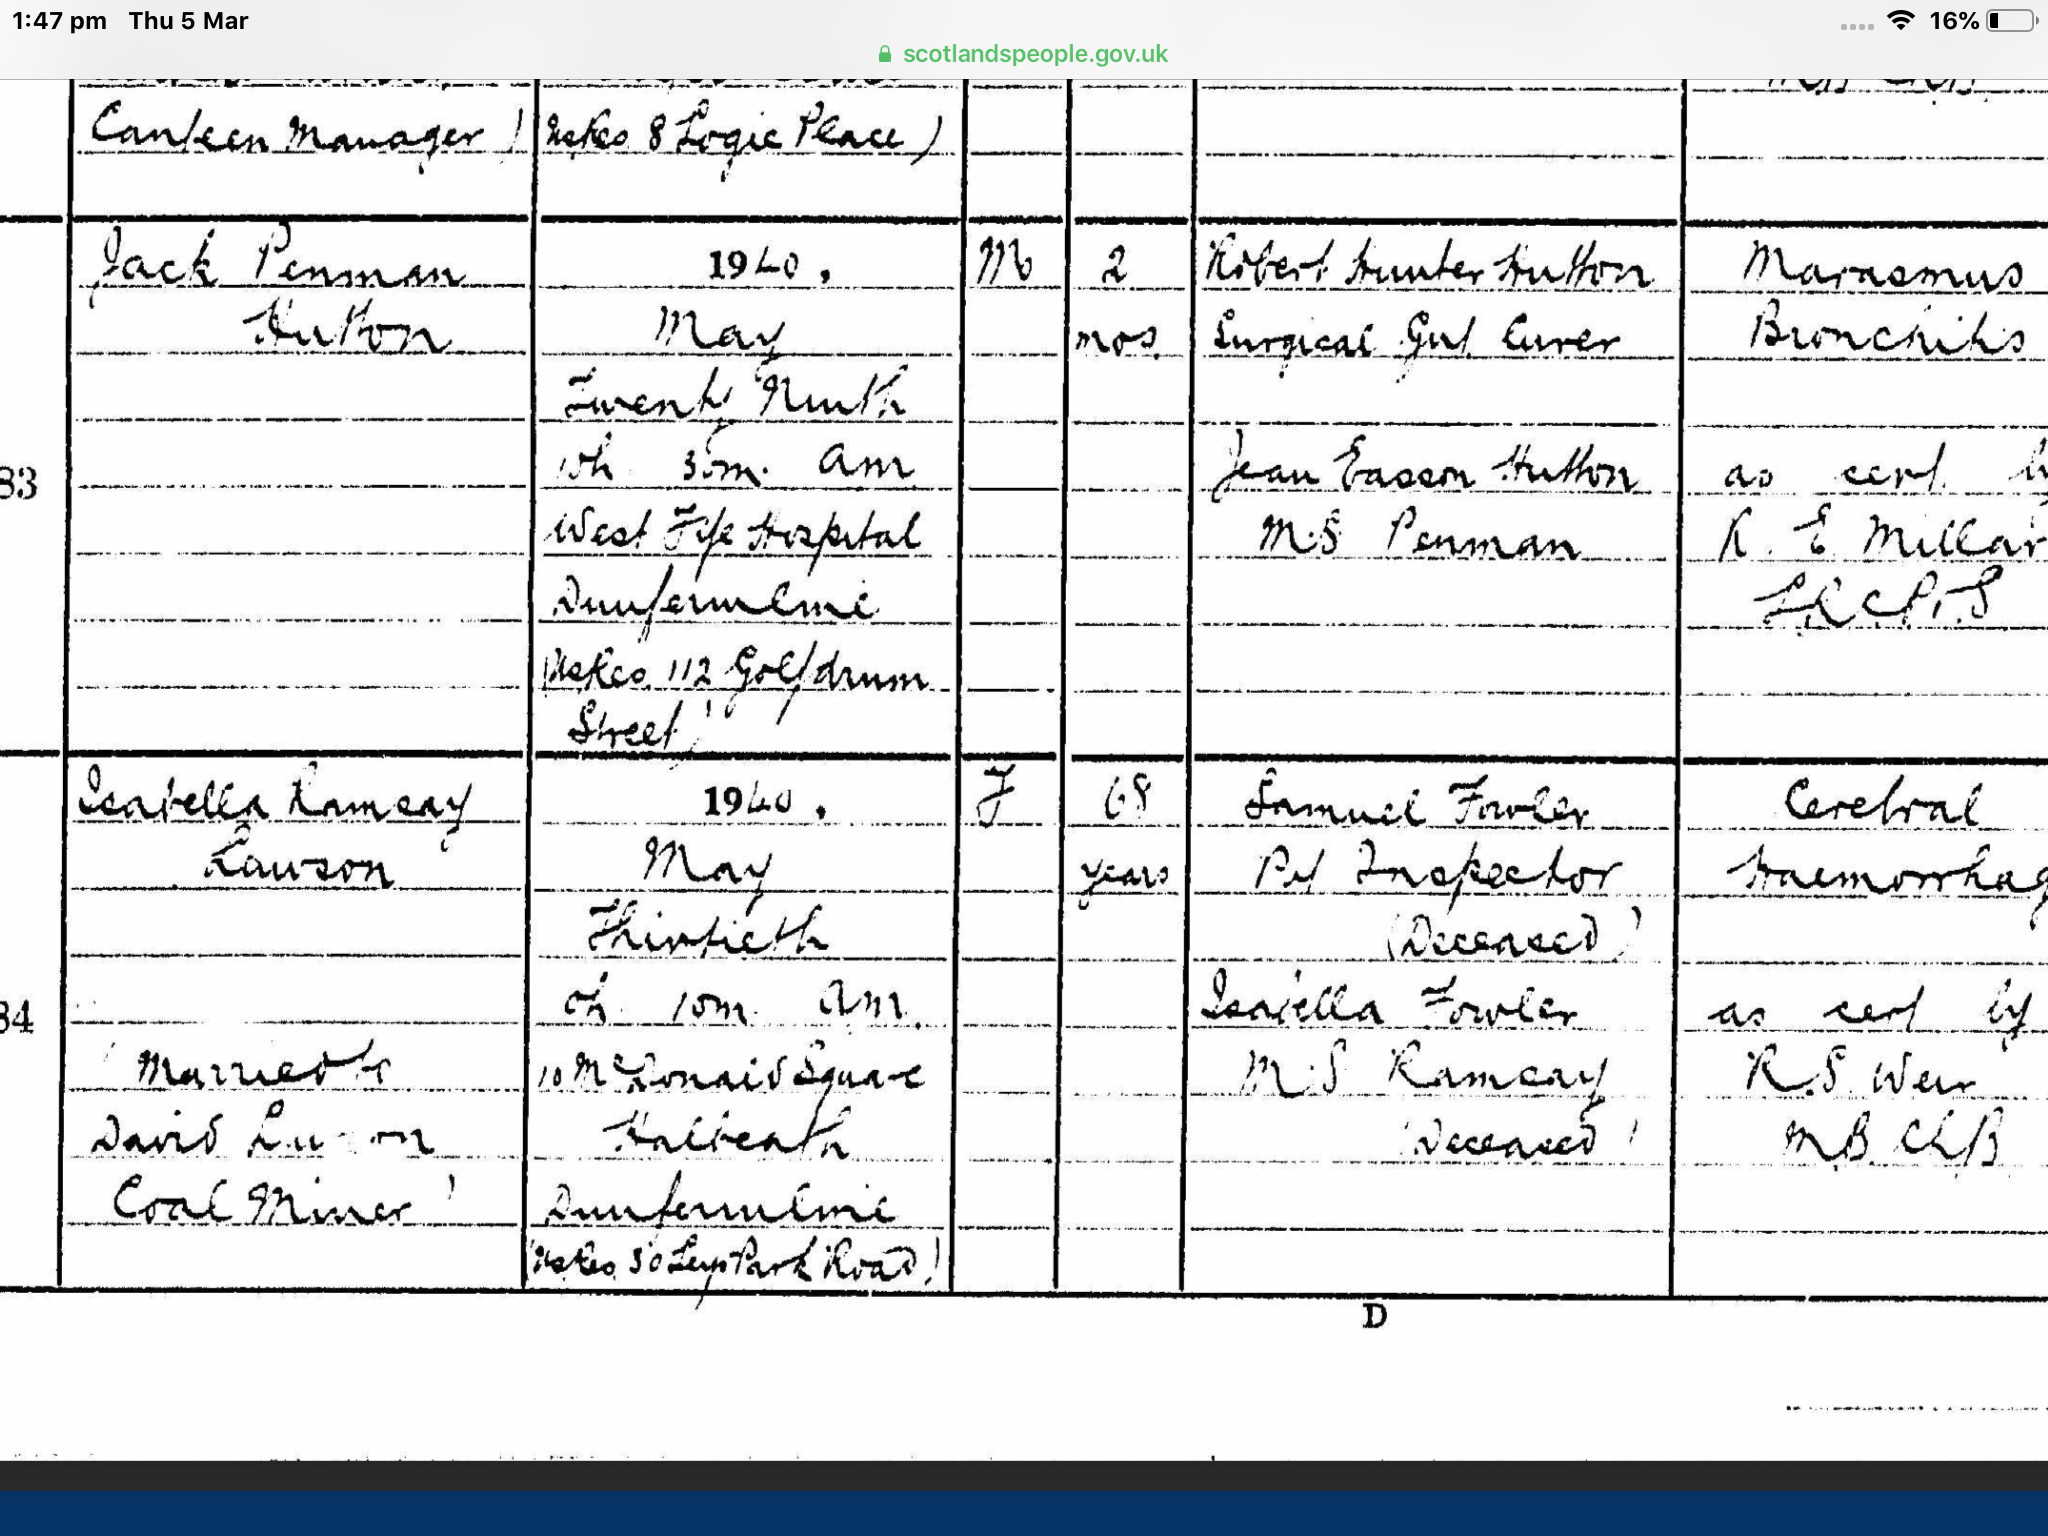 1:47 pm Thu 5 Mar 16%
scotlandspeople.gov.uk
Canteen Manager)
8 Logie Place)
83
Jack Penman
Hutton
1940.
May
Twenty Ninth
10h 30m. am
West Fife Hospital
Dunfermline
112 Golfdrum
Street)
M
2
mos.
Robert Hunter Hutton
Surgical Gut Curer
Jean Easson Hutton
M.S Penman
Marasmus
Bronchitis
as cert b
R. E Millar
L.R.C.P.&S
84
Isabella Ramsay
Lawson
(Married to
David
Coal Miner)
1940.
May
Thirtieth
0h 10m am.
10 McDonald Square
Halbeath
Dunfermline
30 Leys Park Road)
F
68
years
Samuel Fowler
Pit Inspector
(Deceased)
Isabella Fowler
M.S Ramsay
(Deceased)
Cerebral
Haemorrhag
as cert by
R S. Weir
M.B. Ch.B
D